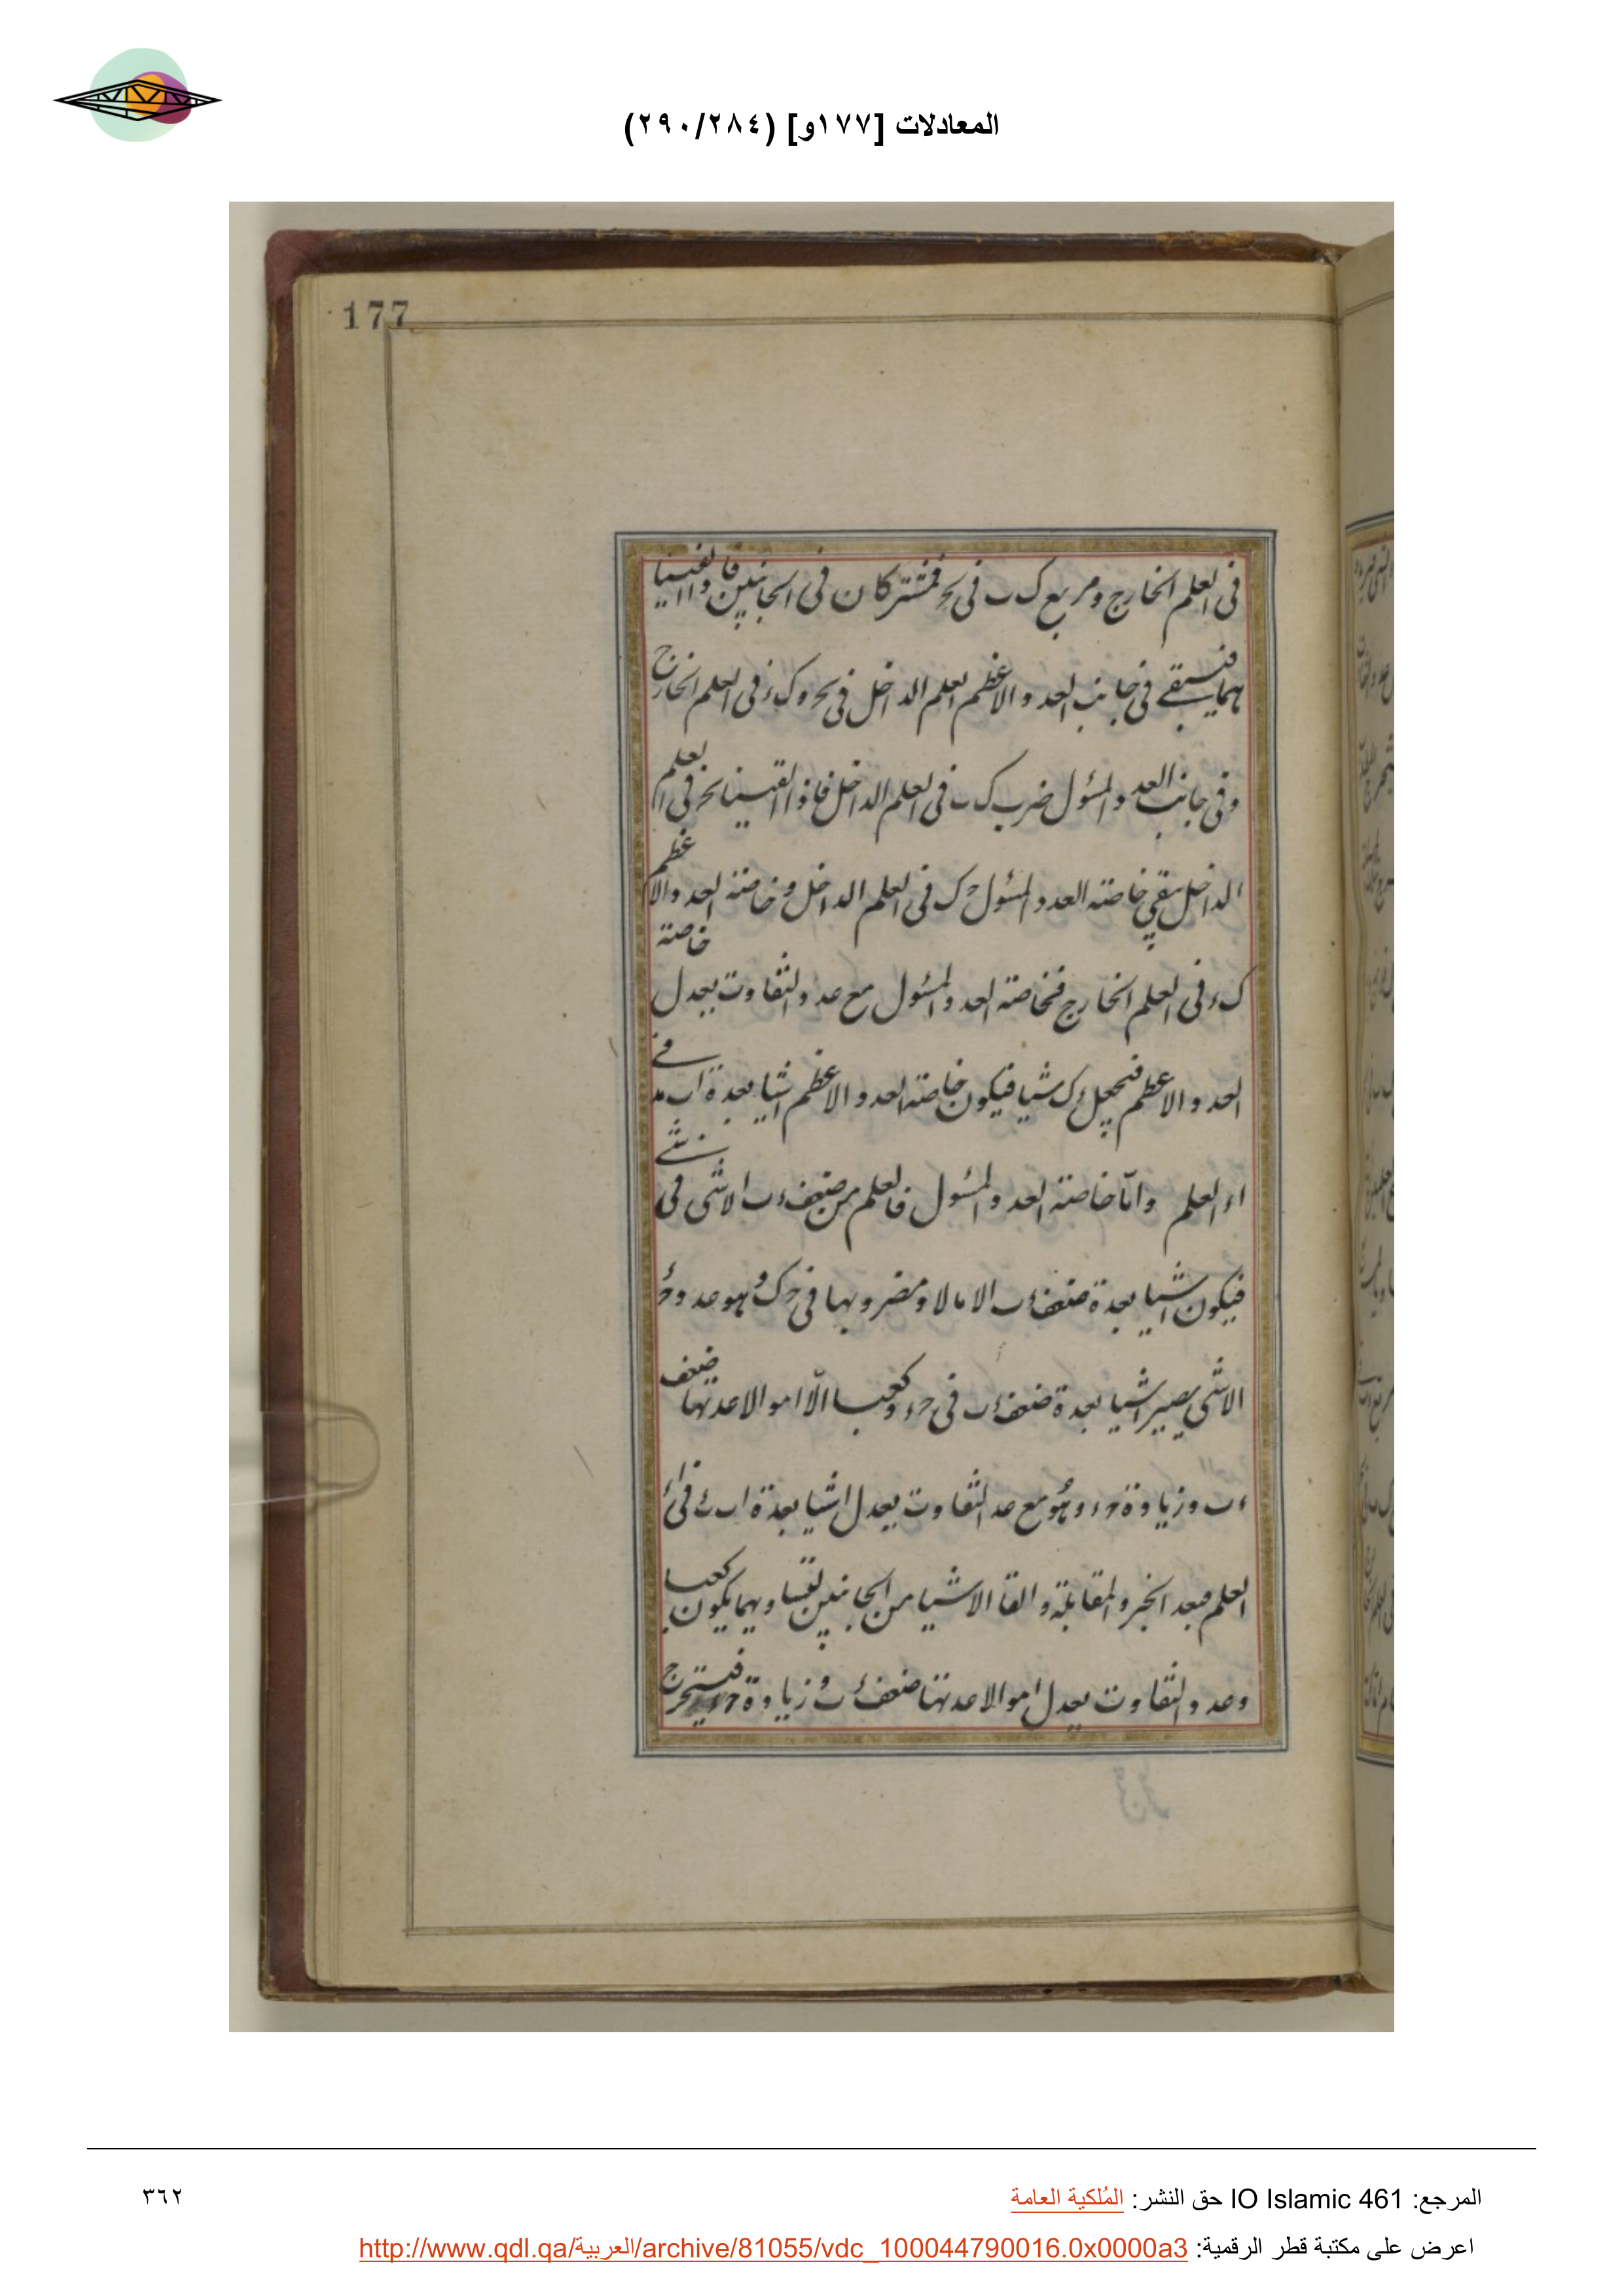 المعادلات [١٧٧و] (٢٩٠/٢٨٤)
177
في العلم الخارج ومربع ك ب في فمشتركان في الجانبين فاذا القينا
هما فيبقى في جانب العدد الاعظم العلم الداخل في وك ء في العلم الخارج
وفي جانب العدد المسئول ضرب ك ب في العلم الداخل فاذا القينا في العلم
الداخل يبقي خاصته العدد المسئول ح ك في العلم الداخل و خاصته العدد الاعظم
ك ء في العلم الخارج فخاصته العدد المسئول مع عدد التفاوت يعدل خاصته
العدد الاعظم فنجعل ك شيا فيكون خاصته العدد الاعظم اشيا بعدة اب في
العلم واما خاصته العدد المسئول فالعلم من ضعف ء ب الا شي في شي
فيكون اشيا بعدة ضعف ء ب الا مالا ومضروبها في ح ك وهو عدد
الا شي يصير اشيا بعدة ضعف ء ب في ح ء وكعبا الّا اموالا عدتها ضعف
ء ب وزيادة ح ء وهو مع عدد التفاوت يعدل اشيا بعدة اب في
العلم فبعد الجبر والمقابلة والقا الاشيا من الجانبين لتساويهما يكون كعبا
وعدد التفاوت يعدل اموالا عدتها ضعف ء ب وزيادة فيستخرج
المرجع: IO Islamic 461 حق النشر: المُلكية العامة
٣٦٢
اعرض على مكتبة قطر الرقمية: http://www.qdl.qa/العربية/archive/81055/vdc_100044790016.0x0000a3